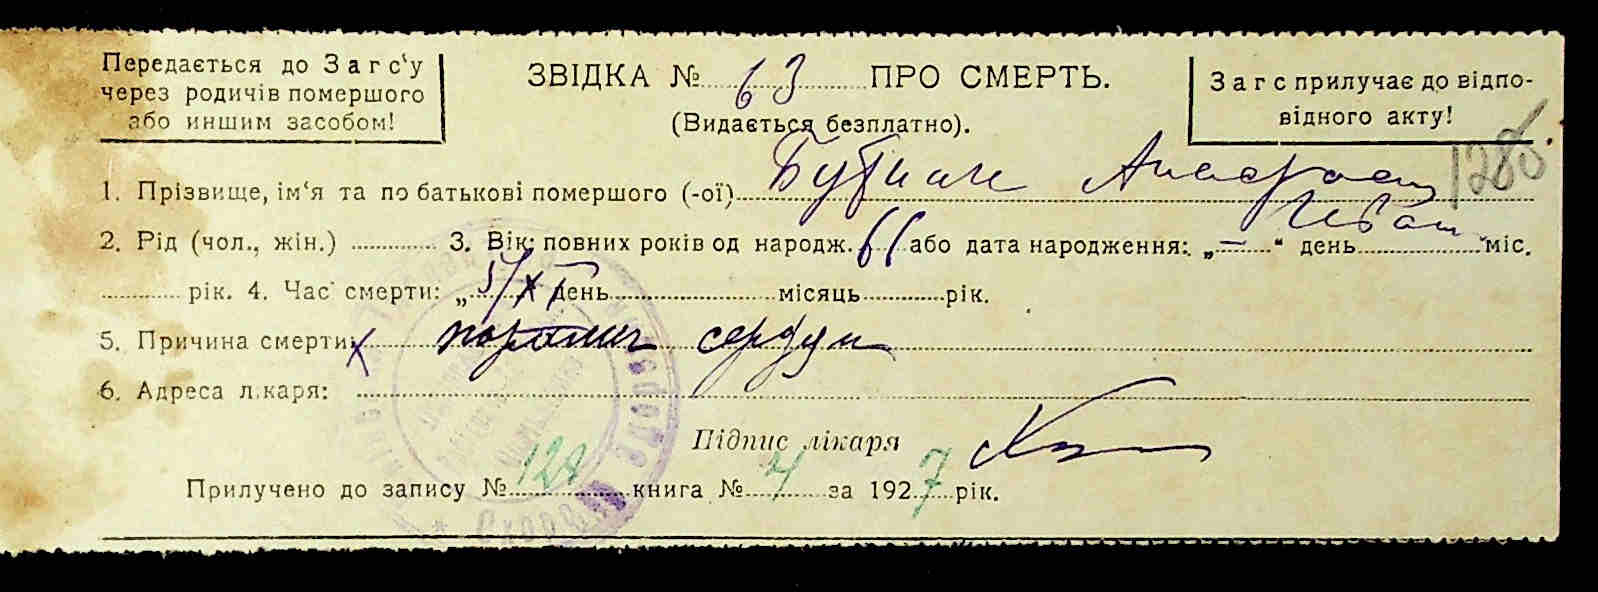 Передається до Загс‘у
через родичів помершого
або иншим засобом!
ЗВІДКА № 63 ПРО СМЕРТЬ.
(Видається безплатно).
Загс прилучає до відпо-
відного акту!
128
1. Прізвище, ім‘я та по батькові помершого (-ої)
2. Рід (чол., жін.) 3. Вік: повних років од народж. 66 або дата народження: „—“ день міс.
рік. 4. Час смерти: „5/XI день місяць рік.
5. Причина смерти: х паралич сердца
6. Адреса лікаря:
Підпис лікаря
Прилучено до запису № 128 книга № 4 за 1927 рік.